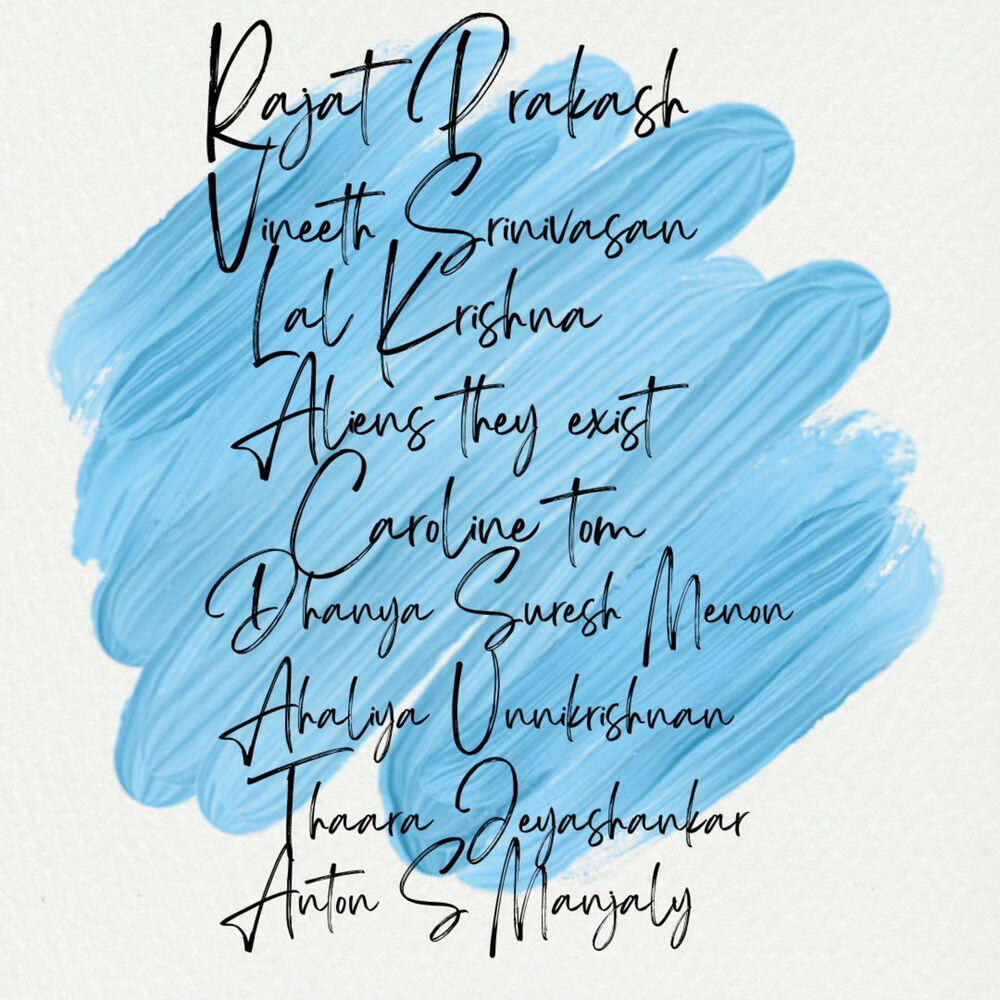 Rajat Prakash
Vineeth Srinivasan
Lal Krishna
Aliens they exist
Caroline tom
Dhanya Suresh Menon
Ahaliya Unnikrishnan
Thaara Jeyashankar
Anton S Manjaly